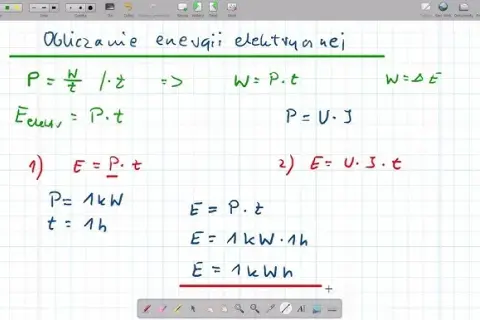 Obliczanie energii elektrycznej
P = W/t /·t => W = P·t W = ΔE
E elektr. = P·t P = U·I
1) E = P·t 2) E = U·I·t
P = 1kW
t = 1h
E = P·t
E = 1kW·1h
E = 1kWh